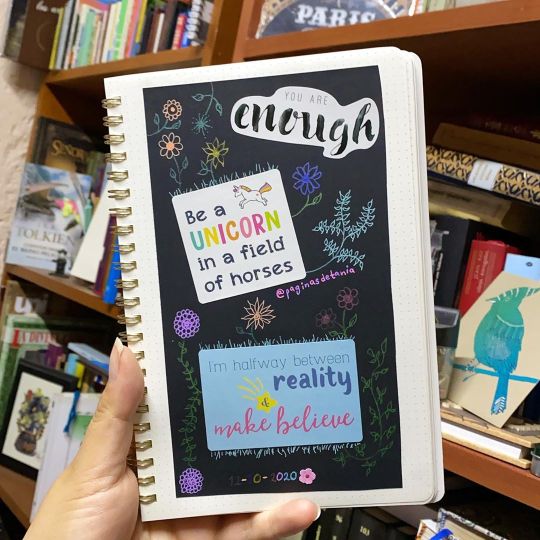 PARIS
YOU ARE
enough
Be a
UNICORN
in a field
of horses
@paginasdetania
TOLKIEN
I'm halfway between
reality
&
make believe
2020